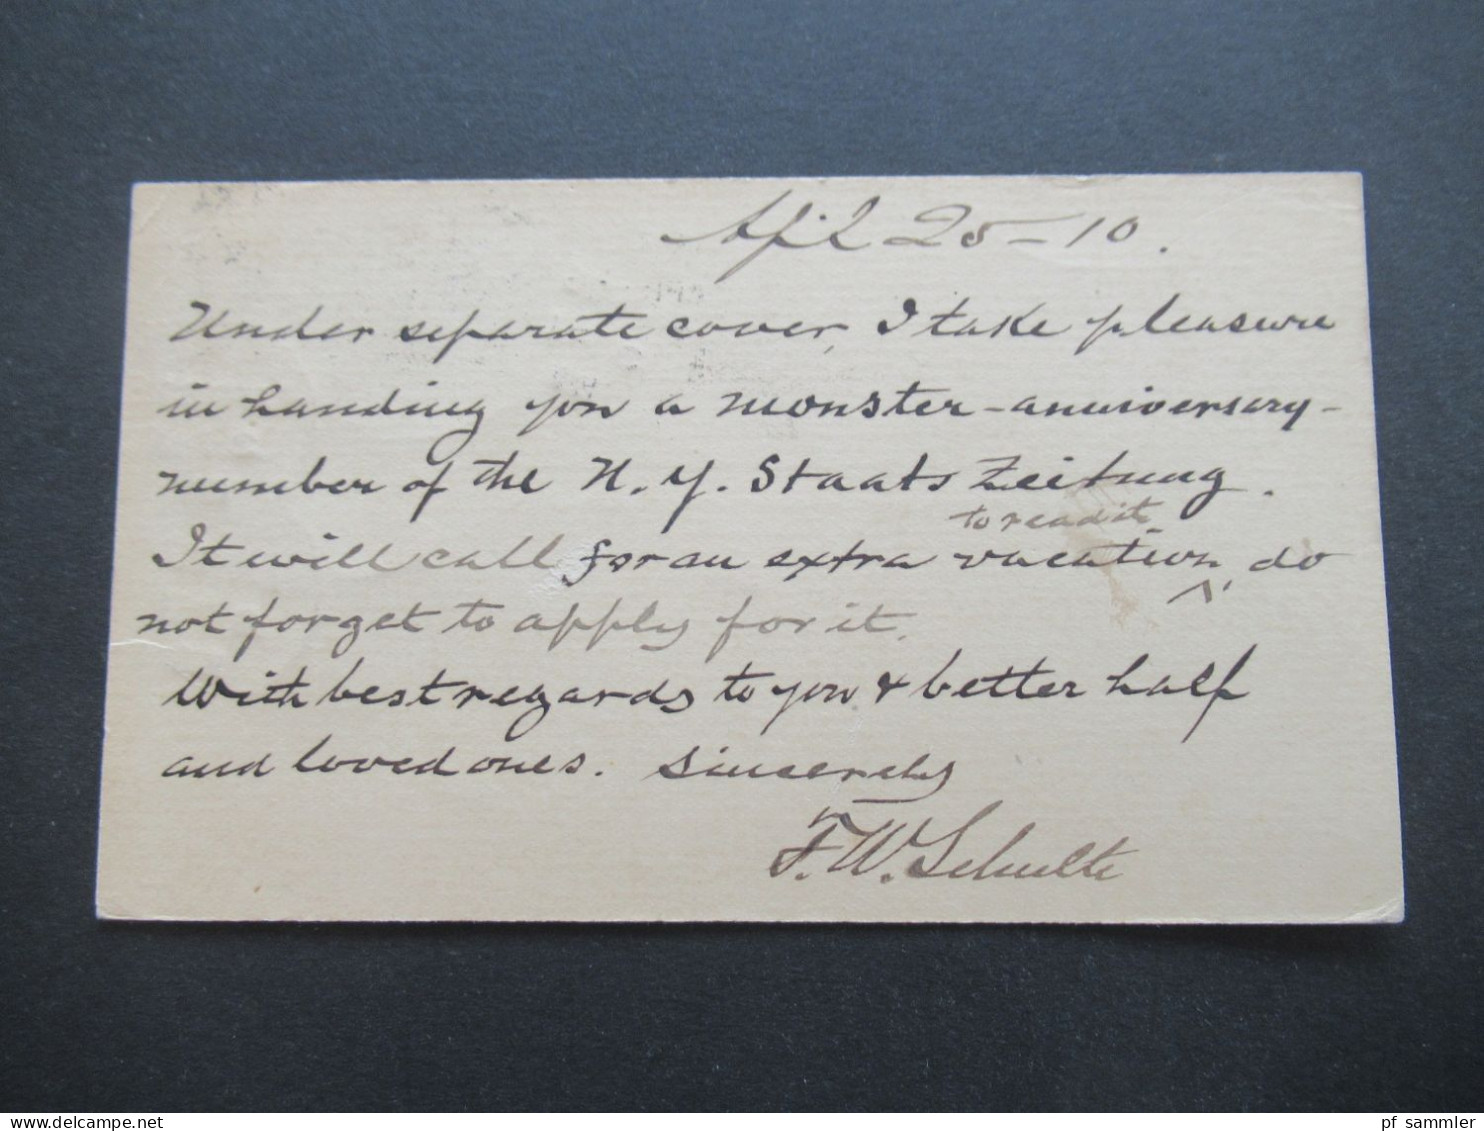 April 25 - 10.
Under separate cover, I take pleasure
in handing you a monster - anniversary -
number of the N. Y. Staats Zeitung.
to read it
It will call for an extra vacation, do
not forget to apply for it.
With best regards to you & better half
and loved ones. Sincerely
F. W. Schulte
www.delcampe.net
pf_sammler